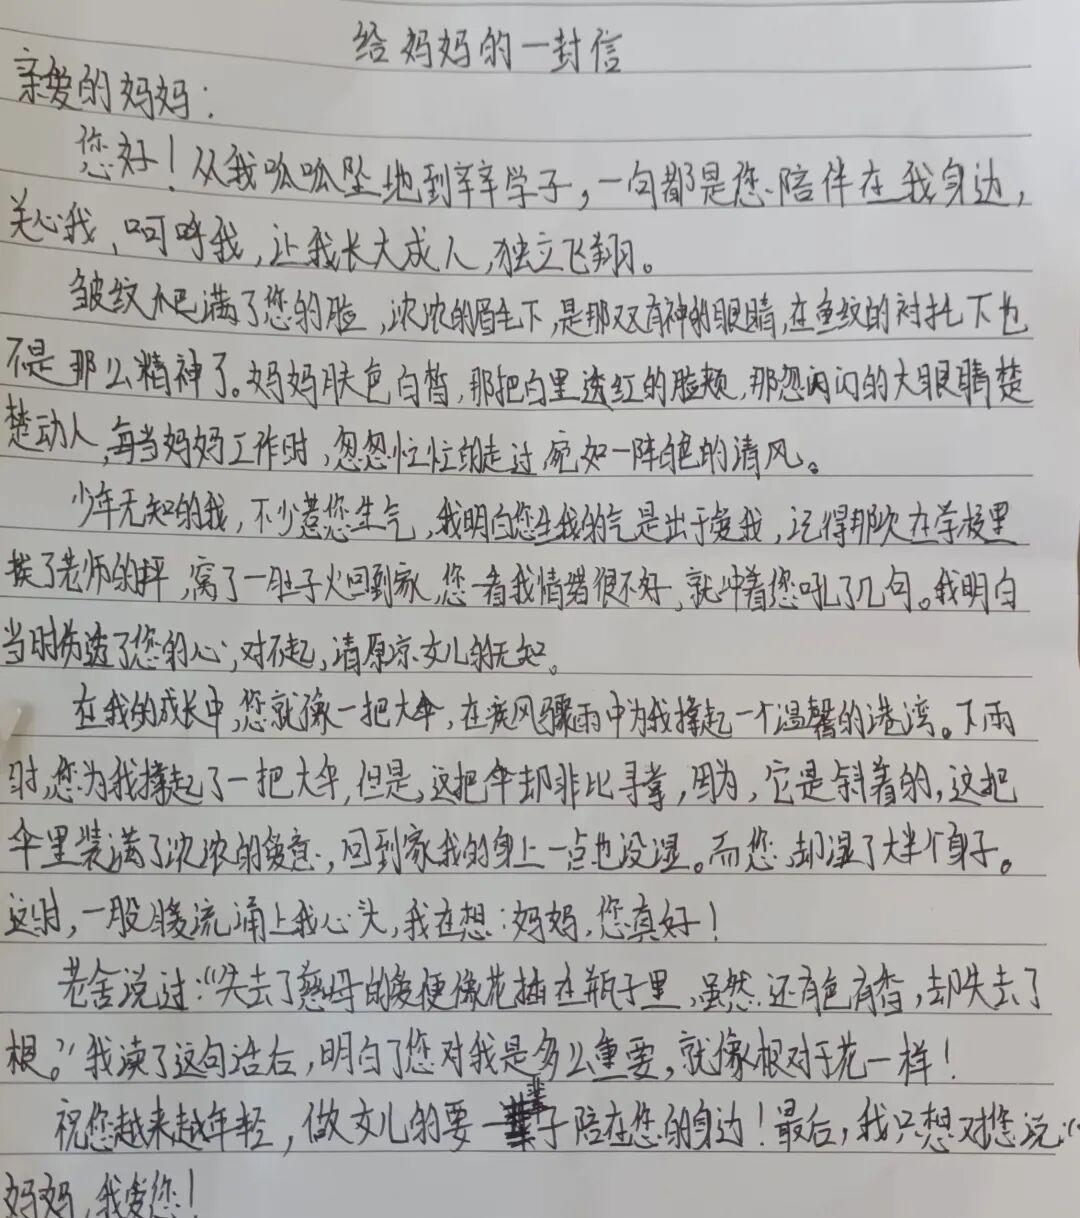 给妈妈的一封信
亲爱的妈妈:
您好!从我呱呱坠地到莘莘学子,一向都是您陪伴在我身边,
关心我,呵呼我,让我长大成人,独立飞翔。
皱纹爬满了您的脸,浓浓的眉毛下,是那双有神的眼睛,在鱼纹的衬托下也
不是那么精神了。妈妈肤色白皙,那把白里透红的脸颊,那忽闪闪的大眼睛楚
楚动人,每当妈妈工作时,忽忽忙忙的走过,宛如一阵白色的清风。
少年无知的我,不少惹您生气,我明白您生我的气是出于爱我,记得那次在学校里
挨了老师的抨,窝了一肚子火回到家,您一看我情绪很不好,就冲着您吼了几句。我明白
当时伤透了您的心,对不起,请原凉女儿的无知。
在我的成长中,您就像一把大伞,在疾风骤雨中为我撑起一个温馨的港湾。下雨
时,您为我撑起了一把大伞,但是,这把伞却非比寻常,因为,它是斜着的,这把
伞里装满了浓浓的爱意,回到家我的身上一点也没湿。而您,却湿了大半个身子。
这时,一股暖流涌上我心头,我在想:妈妈,您真好!
老舍说过:“失去了慈母的爱便像花插在瓶子里,虽然还有色有香,却失去了
根。”我读了这句话后,明白了您对我是多么重要,就像根对于花一样!
祝您越来越年轻,做女儿的要一辈子陪在您的身边!最后,我只想对您说:“
妈妈,我爱您!